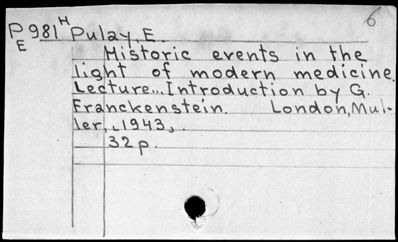 6
PE981 H Pulay, E.
Historic events in the
light of modern medicine.
Lecture... Introduction by G.
Franckenstein. London, Mul-
ler, 1943.
32 p.